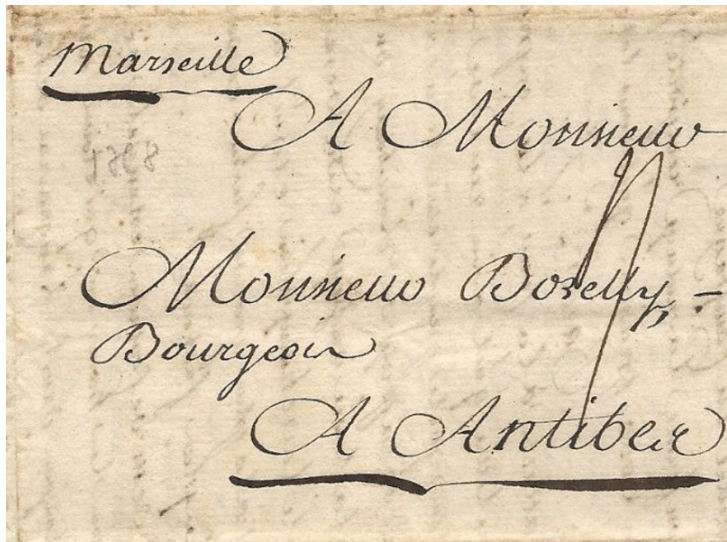 Marseille
A Monsieur
Monsieur Borelly -
Bourgeois
A Antibes